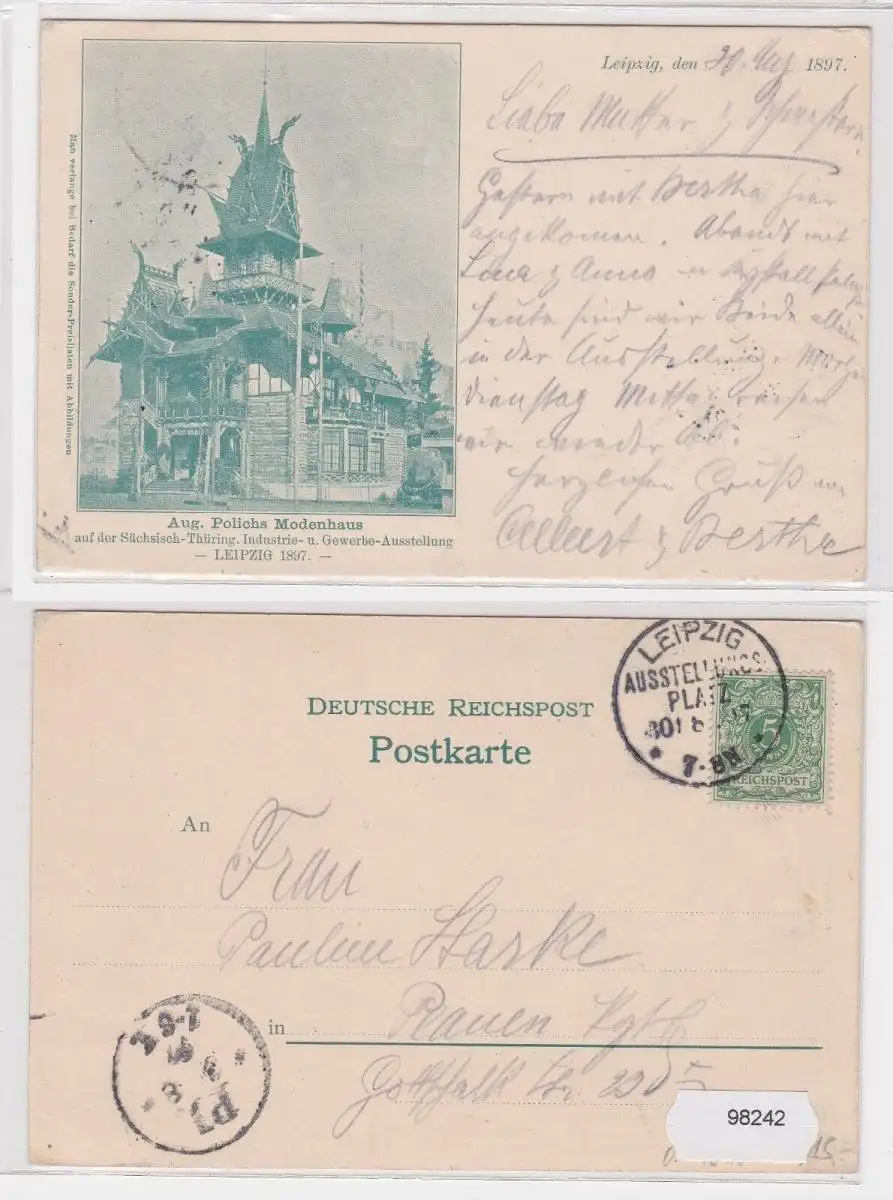 Leipzig, den 30. Aug 1897.
Liebe Mutter & Schwestern
Gestern mit Bertha hier
angekomen. Abends mit
Lina & Anno in Krystallpalast
heute sind wir Beide allein
in der Ausstellung. Morgen
Dienstag Mittag reisen
wir wieder ab.
herzlichen Gruß von
Albert & Bertha
Man verlange bei Bedarf die Sonder-Preislisten mit Abbildungen
Aug. Polichs Modenhaus
auf der Sächsisch-Thüring. Industrie- u. Gewerbe-Ausstellung
— LEIPZIG 1897. —
LEIPZIG
AUSSTELLUNGS
PLATZ
30 8 97
* 7-8N *
5
REICHSPOST
DEUTSCHE REICHSPOST
Postkarte
An
Frau
Pauline Starke
in Plauen Vgtl
Str.
98242
15,-